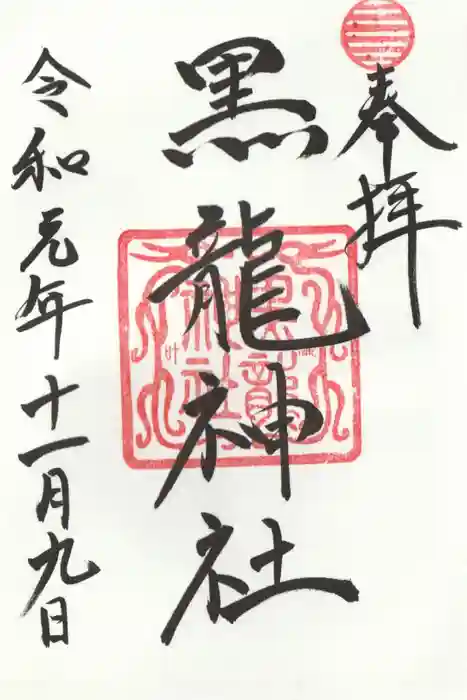 奉拝
黒龍神社
令和元年十一月九日